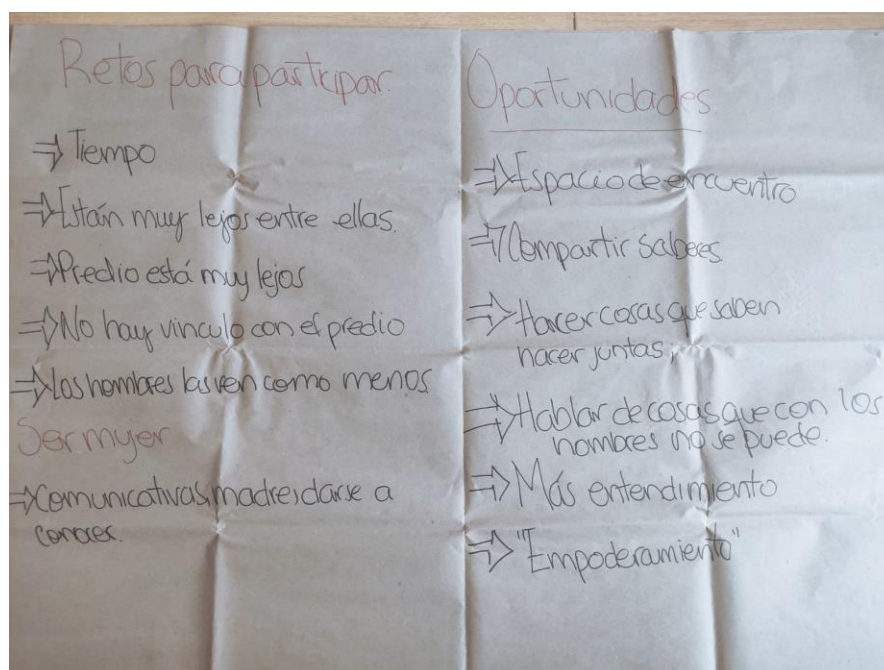 Retos para participar.
⇒ Tiempo
⇒ Están muy lejos entre ellas.
⇒ Predio está muy lejos
⇒ No hay vinculo con el predio
⇒ Los hombres las ven como menos
Ser mujer
⇒ Comunicativas, madre, darse a
conocer.
Oportunidades.
⇒ Espacio de encuentro
⇒ Compartir saberes
⇒ Hacer cosas que saben
hacer juntas.
⇒ Hablar de cosas que con los
hombres no se puede.
⇒ Más entendimiento
⇒ "Empoderamiento"